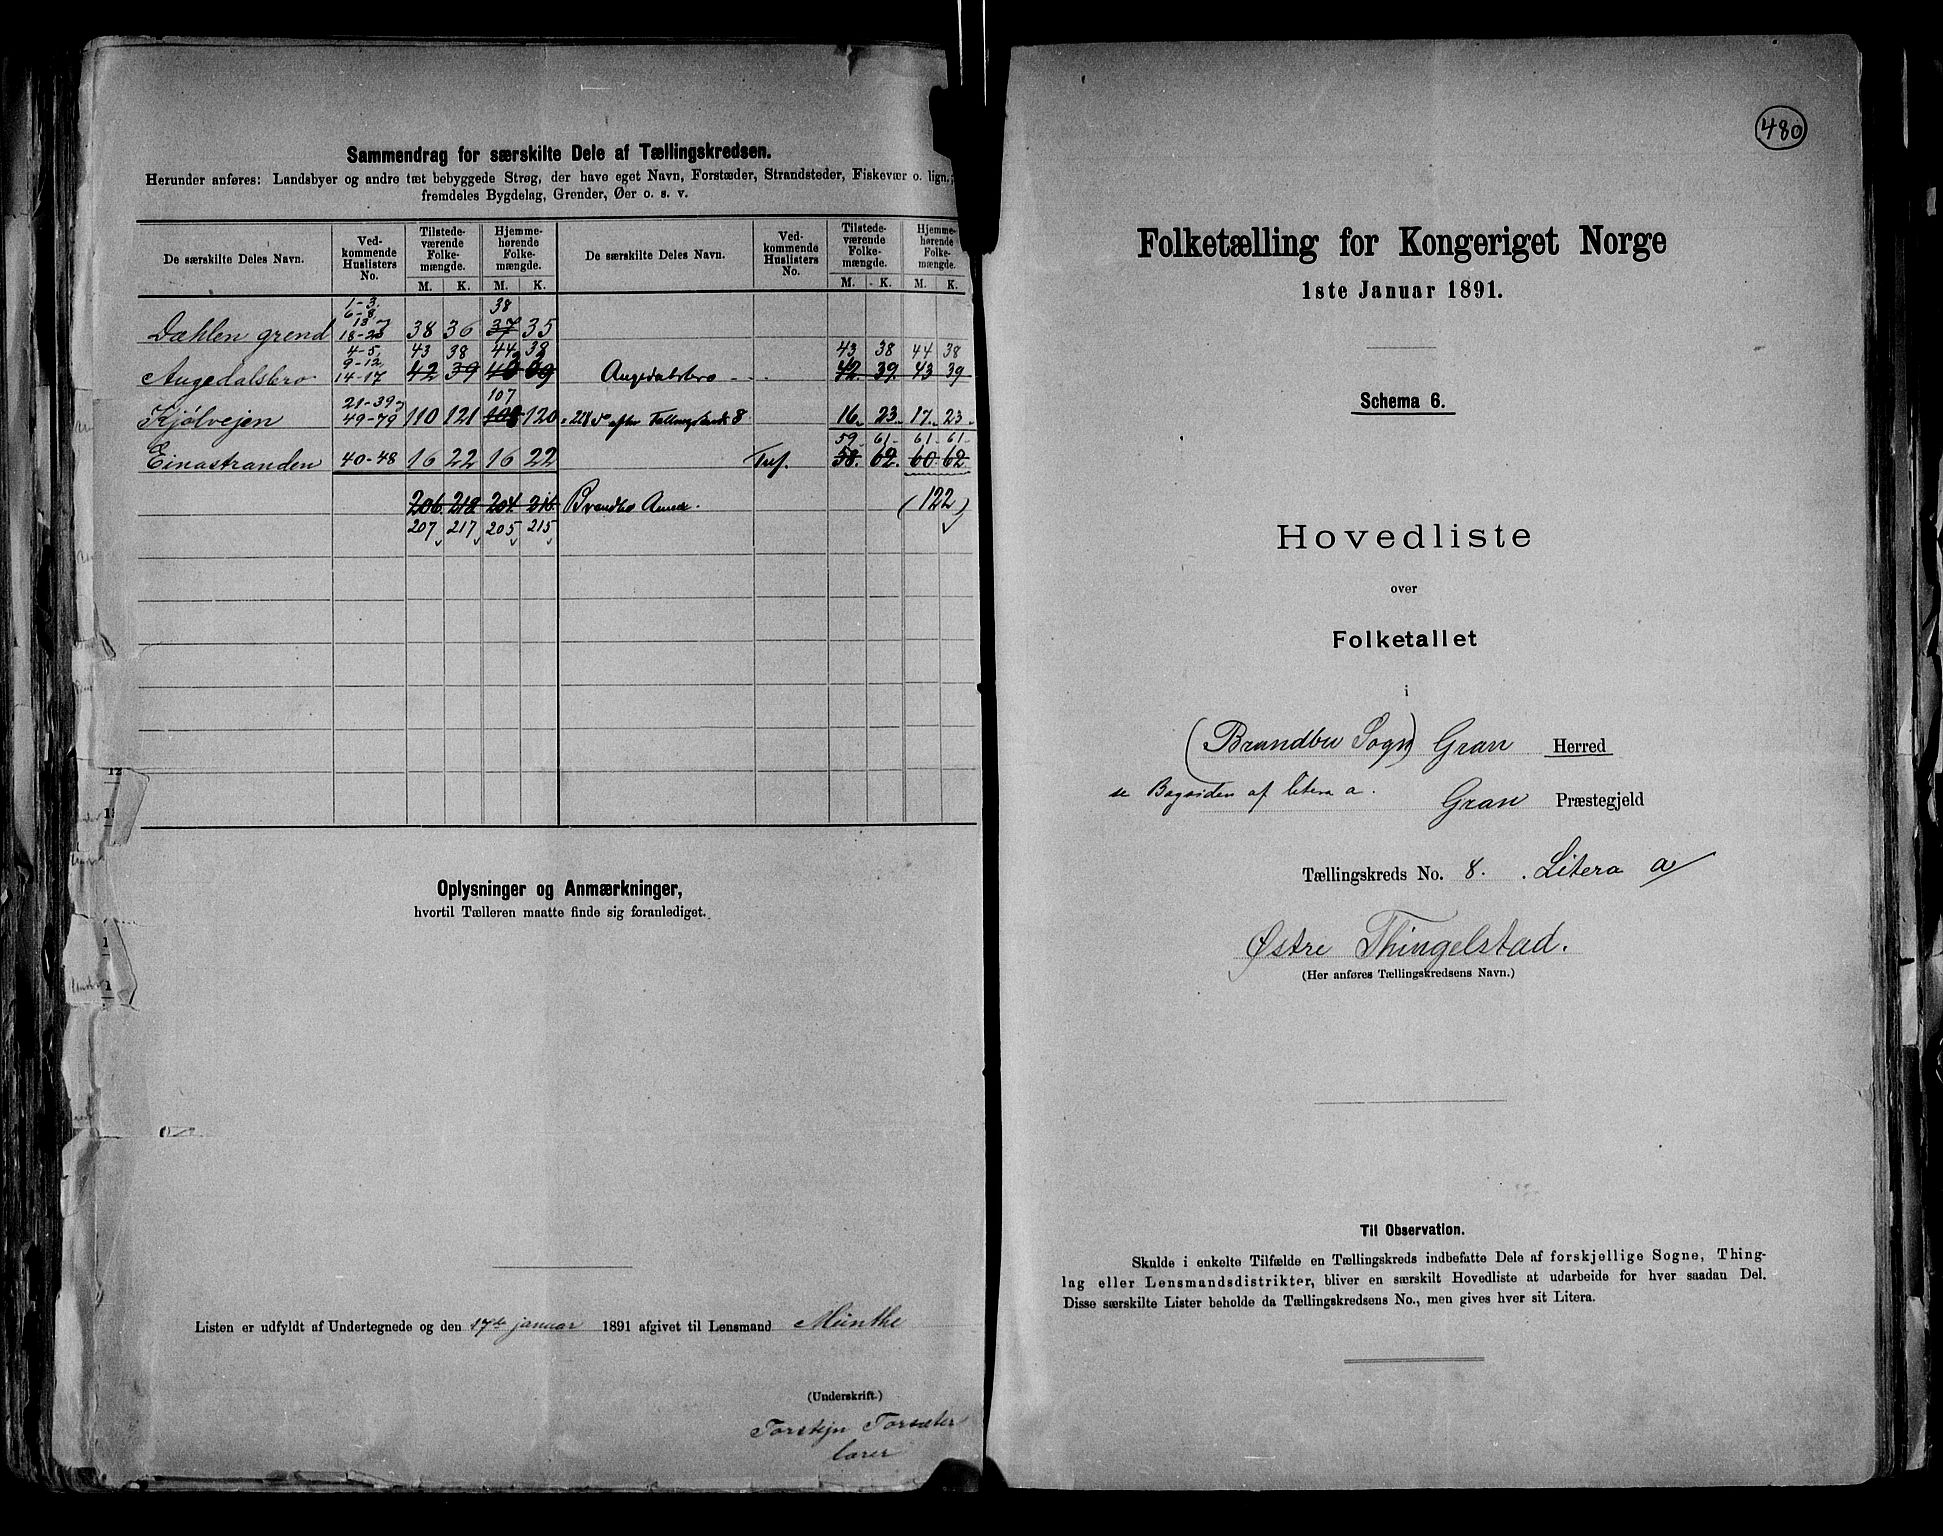 Sammendrag for særskilte Dele af Tællingskredsen.
Herunder anføres: Landsbyer og andre tæt bebyggede Strøg, der have eget Navn, Forstæder, Strandsteder, Fiskevær o. lign.;
fremdeles Bygdelag, Grender, Øer o. s. v.
De særskilte Deles Navn. Ved-kommende Huslisters No. Tilstede-værende Folke-mængde. Hjemme-hørende Folke-mængde. De særskilte Deles Navn. Ved-kommende Huslisters No. Tilstede-værende Folke-mængde. Hjemme-hørende Folke-mængde.
M. K. M. K. M. K. M. K.
1-3 38
6-8
13
Dæhlen grend 18-20 38 36 37 35
4-5 43 38 44 38 43 38 44 38
9-12
Augedalsbro 14-17 42 39 Augedalsbro 42. 39. 43 39
21-39 107
Kjølvejen 49-79 110 121 108 120 16 23 17 23
59 61 61 61
Einastranden 40-48 16 22 16 22 58. 62. 60. 62.
206 218 204 216 (122)
207 217 205 215
Oplysninger og Anmærkninger,
hvortil Tælleren maatte finde sig foranlediget.
Listen er udfyldt af Undertegnede og den 17de januar 1891 afgivet til Lensmand Münthe
(Underskrift.)
Torstejn Torsæter
lærer
480
Folketælling for Kongeriget Norge
1ste Januar 1891.
Schema 6.
Hovedliste
over
Folketallet
i
(Brandbu Sogn) Gran Herred
se Bagsiden af litera a. Gran Præstegjeld
Tællingskreds No. 8. Litera a
Østre Thingelstad.
(Her anføres Tællingskredsens Navn.)
Til Observation.
Skulde i enkelte Tilfælde en Tællingskreds indbefatte Dele af forskjellige Sogne, Thing-
lag eller Lensmandsdistrikter, bliver en særskilt Hovedliste at udarbeide for hver saadan Del.
Disse særskilte Lister beholde da Tællingskredsens No., men gives hver sit Litera.